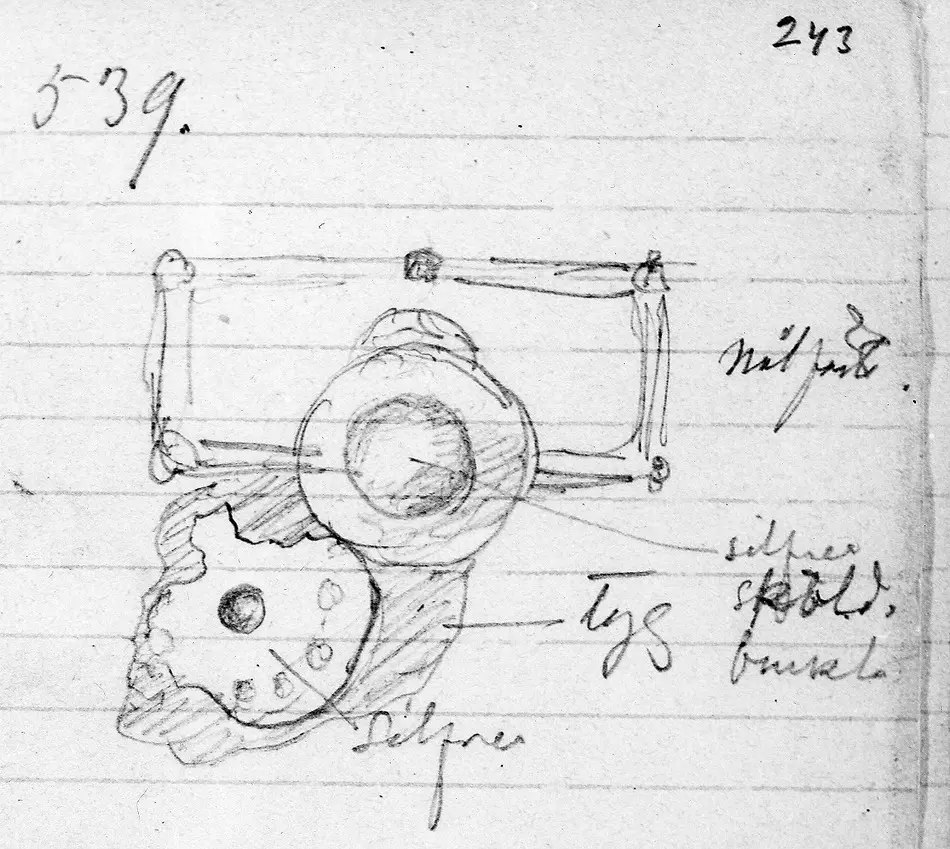 243
539.
silfver
Tyg sköld.
buckla
Silfver